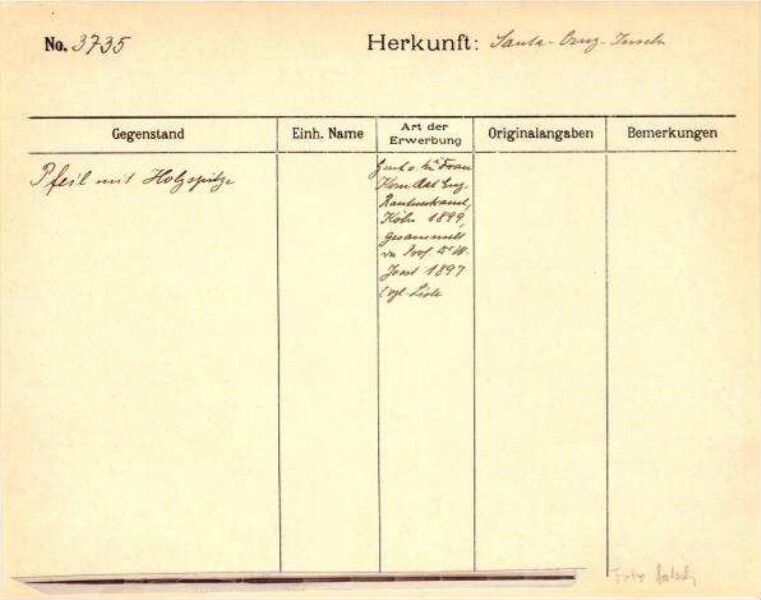 No. 3735 Herkunft: Santa-Cruz-Inseln
Gegenstand Einh. Name Art der Erwerbung Originalangaben Bemerkungen
Pfeil mit Holzspitze
Frau
Eug.
Rautenstrauch,
Köln 1899,
gesammelt
von Prof. Dr. W.
Joest 1897
(vgl. Liste
Foto falsch